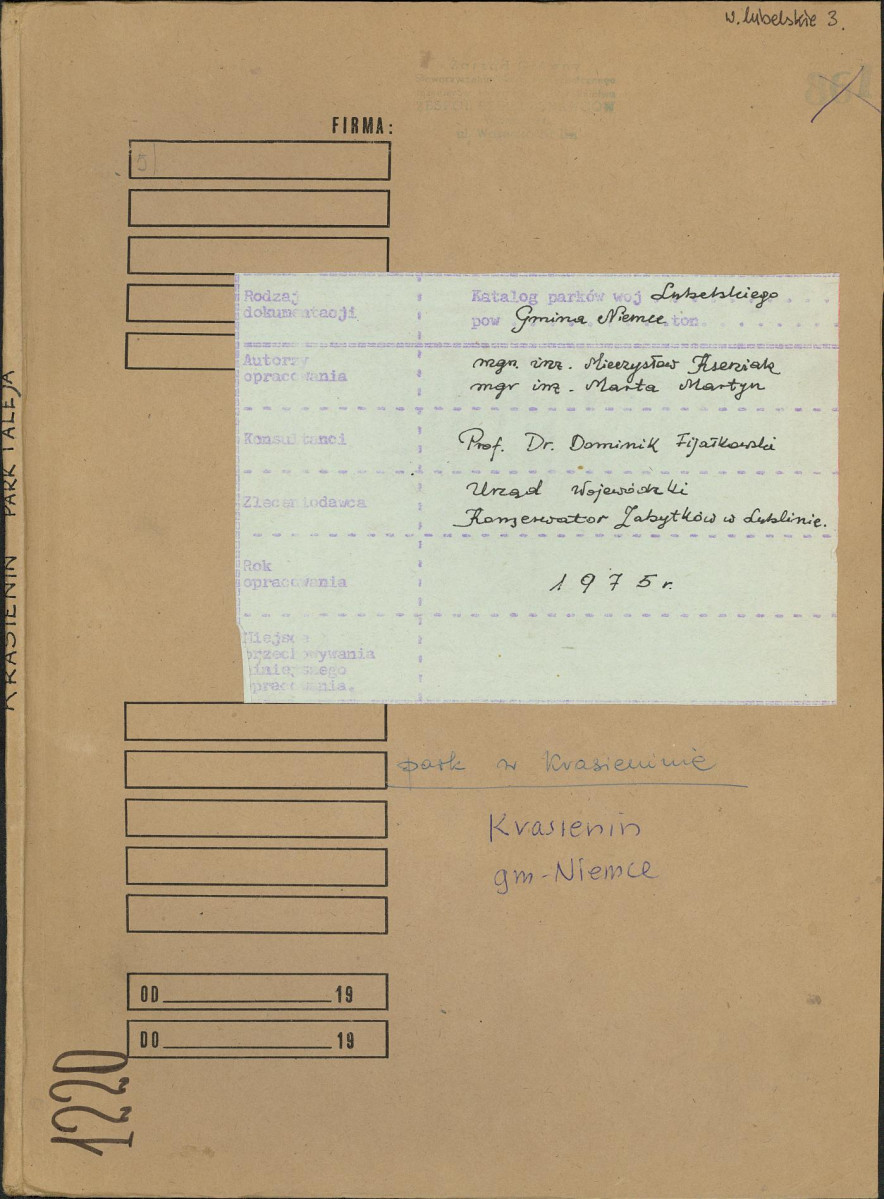 w. lubelskie 3.
FIRMA:
5
Rodzaj dokumentacji
Katalog parków woj Lubelskiego
pow Gmina Niemce
Autorzy opracowania
mgr. inż. Mieczysław Kseniak
mgr inż. Marta Martyn
Konsultanci
Prof. Dr. Dominik Fijałkowski
Zleceniodawca
Urząd Wojewódzki
Konserwator Zabytków w Lublinie.
Rok opracowania
1975 r.
Miejsce
przechowywania
niniejszego
opracowania.
park w Krasieninie
Krasienin
gm-Niemce
OD 19
DO 19
1220
KRASIENIN PARK I ALEJA